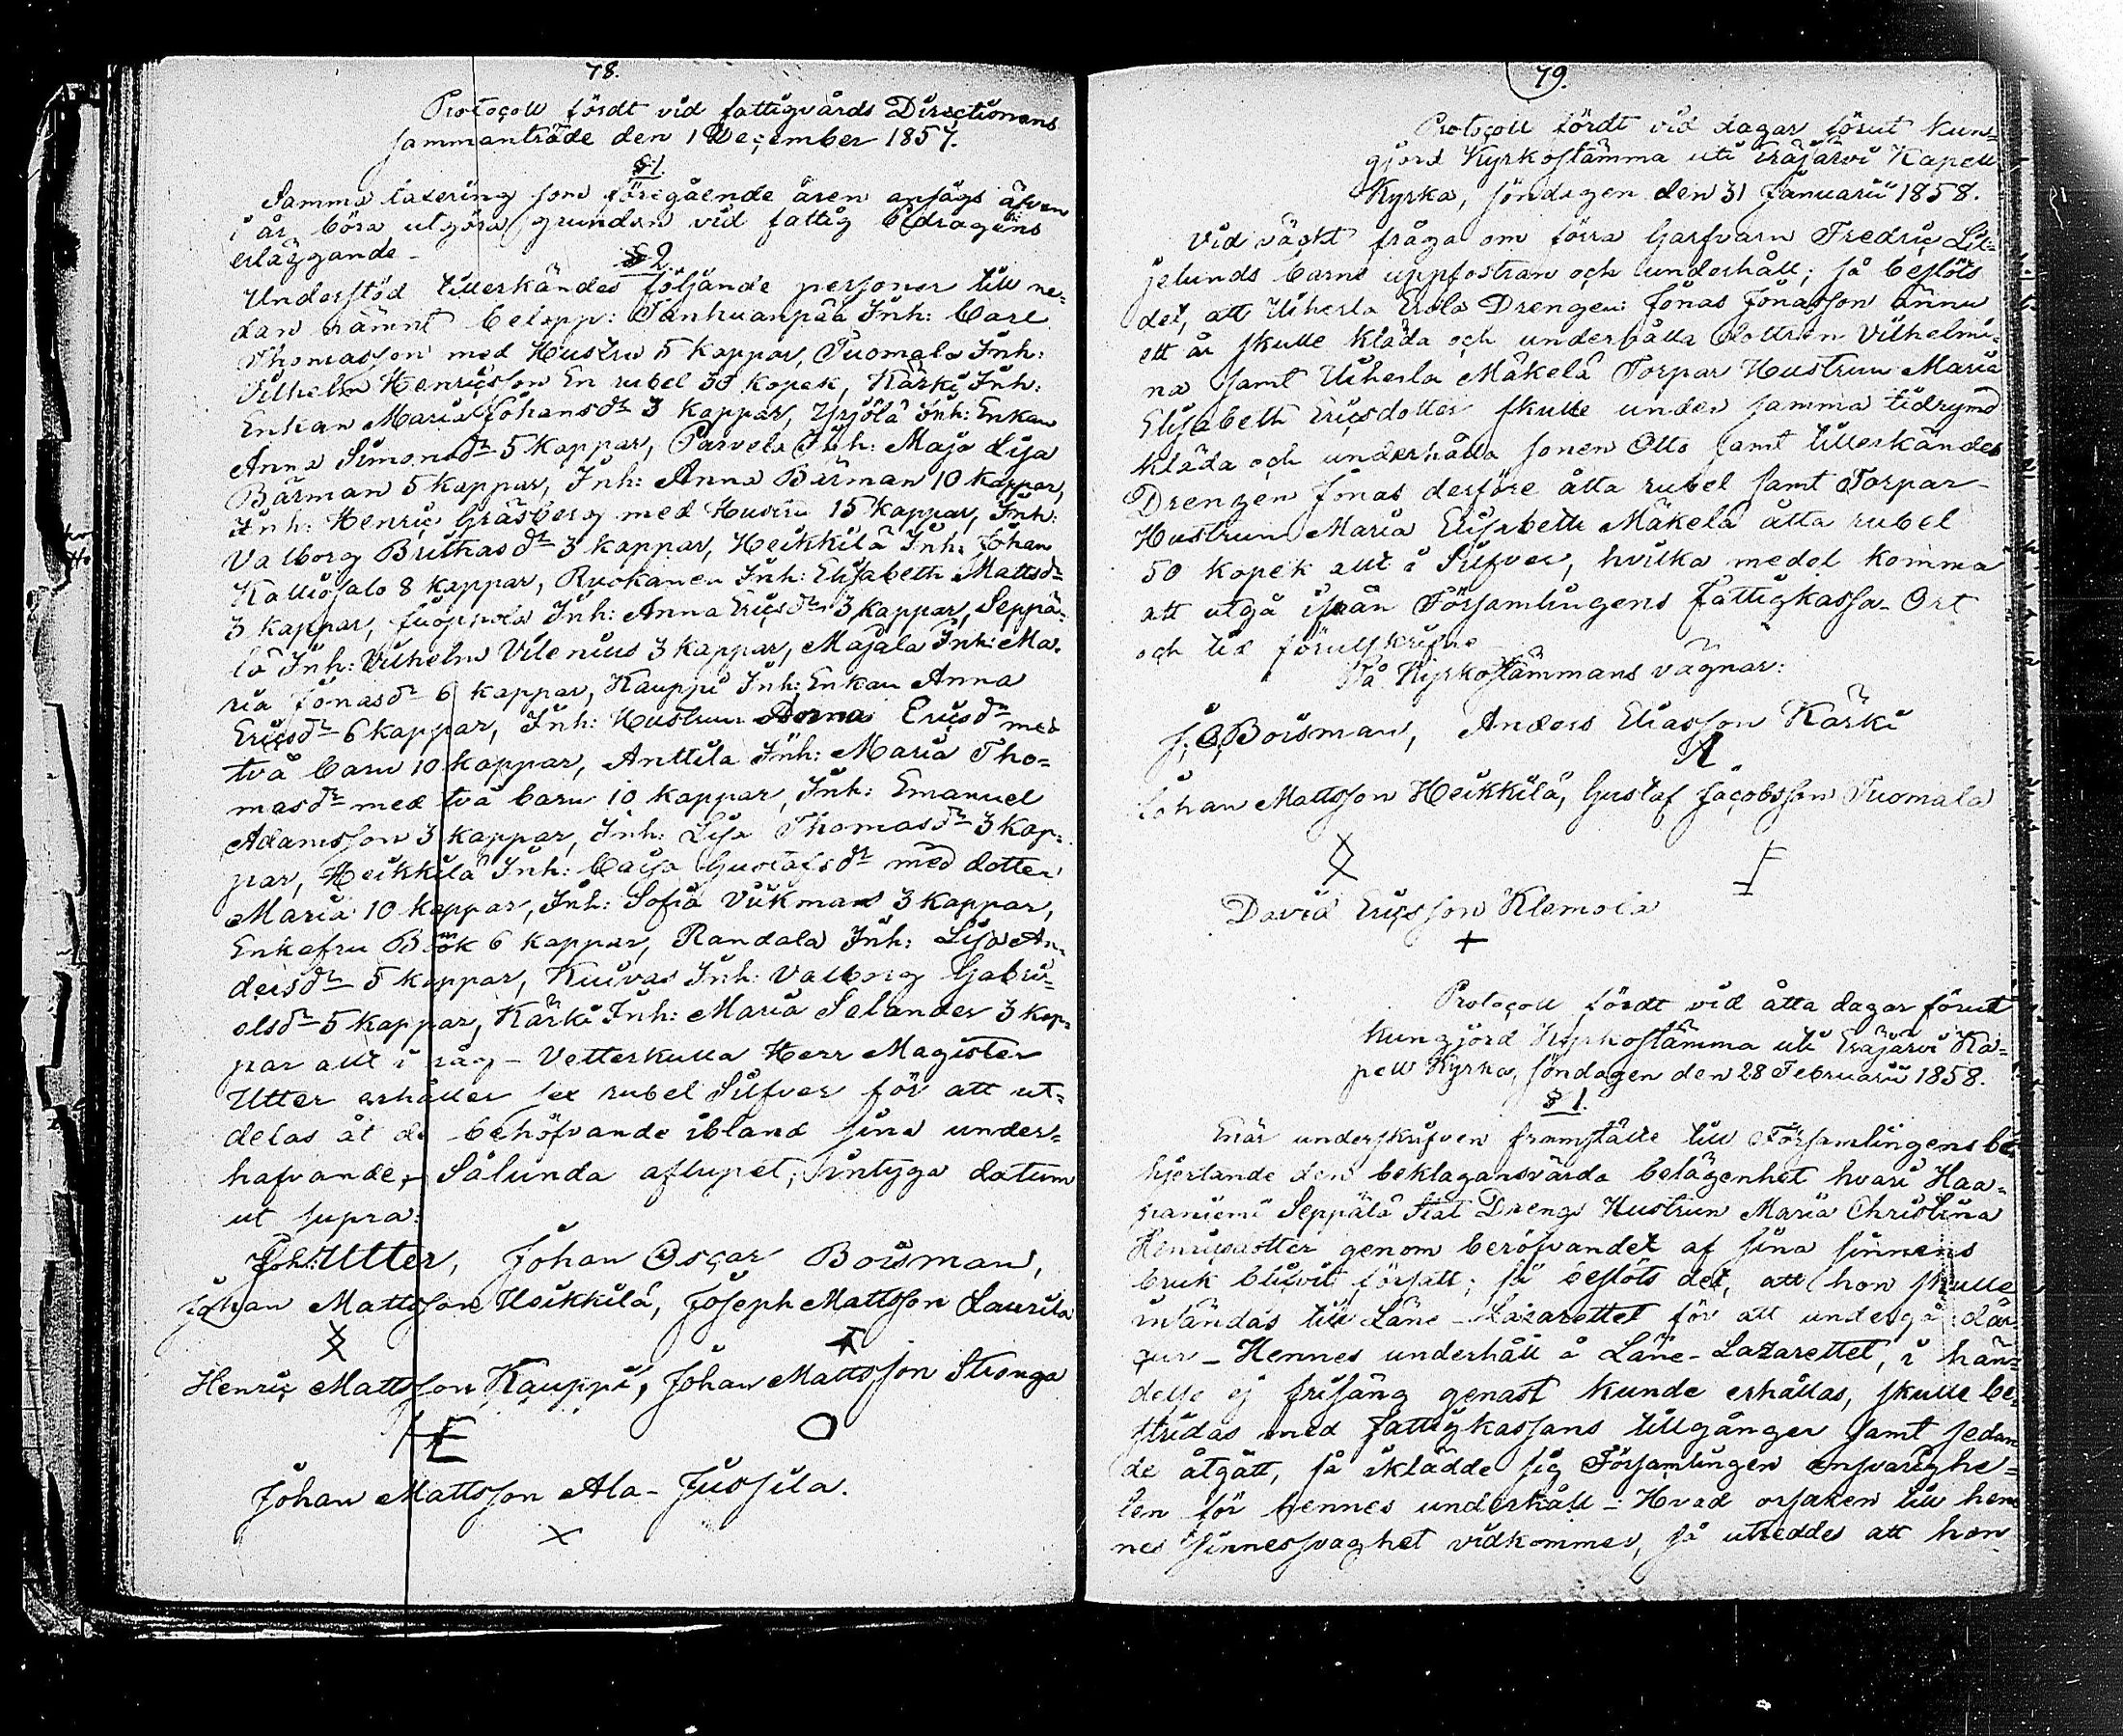 78.
Protocoll fördt vid fattigvårds Directionens
sammanträde den 1 December 1857.
§ 1.
Samma taxering som föregående åren ansågs äfven
i år böra utgöra grunden vid fattig bidragens
erläggande -
§ 2.
Understöd tillerkändes följande personer till ne-
dan nämnt belopp: Tanhuanpää Inh: Carl
Thomasson med Hustru 5 kappar, Tuomala Inh:
Vilhelm Henricsson En rubel 30 kopek, Kärki Inh:
Enkan Maria Johansdr 3 kappar, Yrjölä Inh: Enkan
Anna Simonsdr 5 kappar, Parvela Inh: Maja Lisa
Bärman 5 kappar, Inh: Anna Bärman 10 kappar,
Inh: Henric Gräsberg med Hustru 15 kappar, Inh:
Valborg Brithasdr 3 kappar, Heikkilä Inh: Johan
Kalliosalo 8 kappar, Ruokanen Inh: Elisabeth Mattsdr
3 kappar, Juoppola Inh: Anna Ericsdr 3 kappar, Seppä-
lä Inh: Vilhelm Vilenius 3 kappar, Majala Inh: Ma-
ria Jonasdr 6 kappar, Kauppi Inh: Enkan Anna
Ericsdr 6 kappar, Inh: Hustrun Anna Ericsdr med
två barn 10 kappar, Anttila Inh: Maria Tho-
masdr med två barn 10 kappar, Inh: Emanuel
Adamsson 3 kappar, Inh: Lisa Thomasdr 3 kap-
par, Heikkilä Inh: Caisa Gustafsdr med dotter
Maria 10 kappar, Inh: Sofia Vikman 3 kappar,
Enkefru Böök 6 kappar, Randala Inh: Lisa An-
dersdr 5 kappar, Kuivas Inh: Valborg Gabri-
elsdr 5 kappar, Kärki Inh: Maria Selander 3 kap-
par allt i råg - Vetterkulla Herr Magister
Utter erhåller sex rubel Silfver för att ut-
delas åt de behöfvande ibland sina under-
hafvande, - Sålunda aflupet; intyga datum
ut supra:
Joh: Utter, Johan Oscar Boisman,
Johan Mattsson Heikkilä, Joseph Mattsson Laurila
Henric Mattsson Kauppi, Johan Mattsson Stronga
Johan Mattsson Ala-Jussila.
79.
Protocoll fördt vid dagar förut kun-
gjord Kyrkostämma uti Eräjärvi Kapell
Kyrka, söndagen den 31 Januarii 1858.
Vid väckt fråga om förra Garfvarn Fredric Lil-
jelunds barns uppfostran och underhåll; så beslöts
det, att Uiherla Erola Drengen: Jonas Jonasson ännu
ett år skulle kläda och underhålla dottren Vilhelmi-
na samt Uiherla Mäkelä Torpar Hustrun Maria
Elisabeth Ericsdotter skulle under samma tidrymd
kläda och underhålla sonen Otto samt tillerkändes
Drengen Jonas derföre åtta rubel samt Torpar-
Hustrun Maria Elisabeth Mäkelä åtta rubel
50 kopek allt i Silfver, hvilka medel komma
att utgå ifrån Församlingens Fattigkassa - Ort
och tid förutskrifne
På Kyrkostämmans vägnar:
J: O: Boisman, Anders Eliasson Kärki
Johan Mattsson Heikkilä, Gustaf Jacobsson Tuomala
David Ericsson Klemola
Protocoll fördt vid åtta dagar förut
kungjord Kyrkostämma uti Eräjärvi Ka-
pell Kyrka, söndagen den 28 Februarii 1858.
§ 1.
Enär underskrifven framställe till Församlingens be-
hjertande den beklagansvärda belägenhet hvari Haa-
paniemi Seppälä Stat Drengs Hustrun Maria Christina
Henricsdotter genom beröfvandet af sina sinnens
bruk blifvit försatt; så beslöts det, att hon skulle
insändas till Läne-Lazarettet för att undergå där
cur - Hennes underhåll å Läne-Lazarettet, i hän-
delse ej frisäng genast kunde erhållas, skulle be-
stridas med fattigkassans tillgångar samt sedan
de åtgått, så iklädde sig Församlingen ansvarighe-
ten för hennes underhåll - Hvad orsaken till hen-
nes sinnessvaghet vidkommer, så utreddes att hon